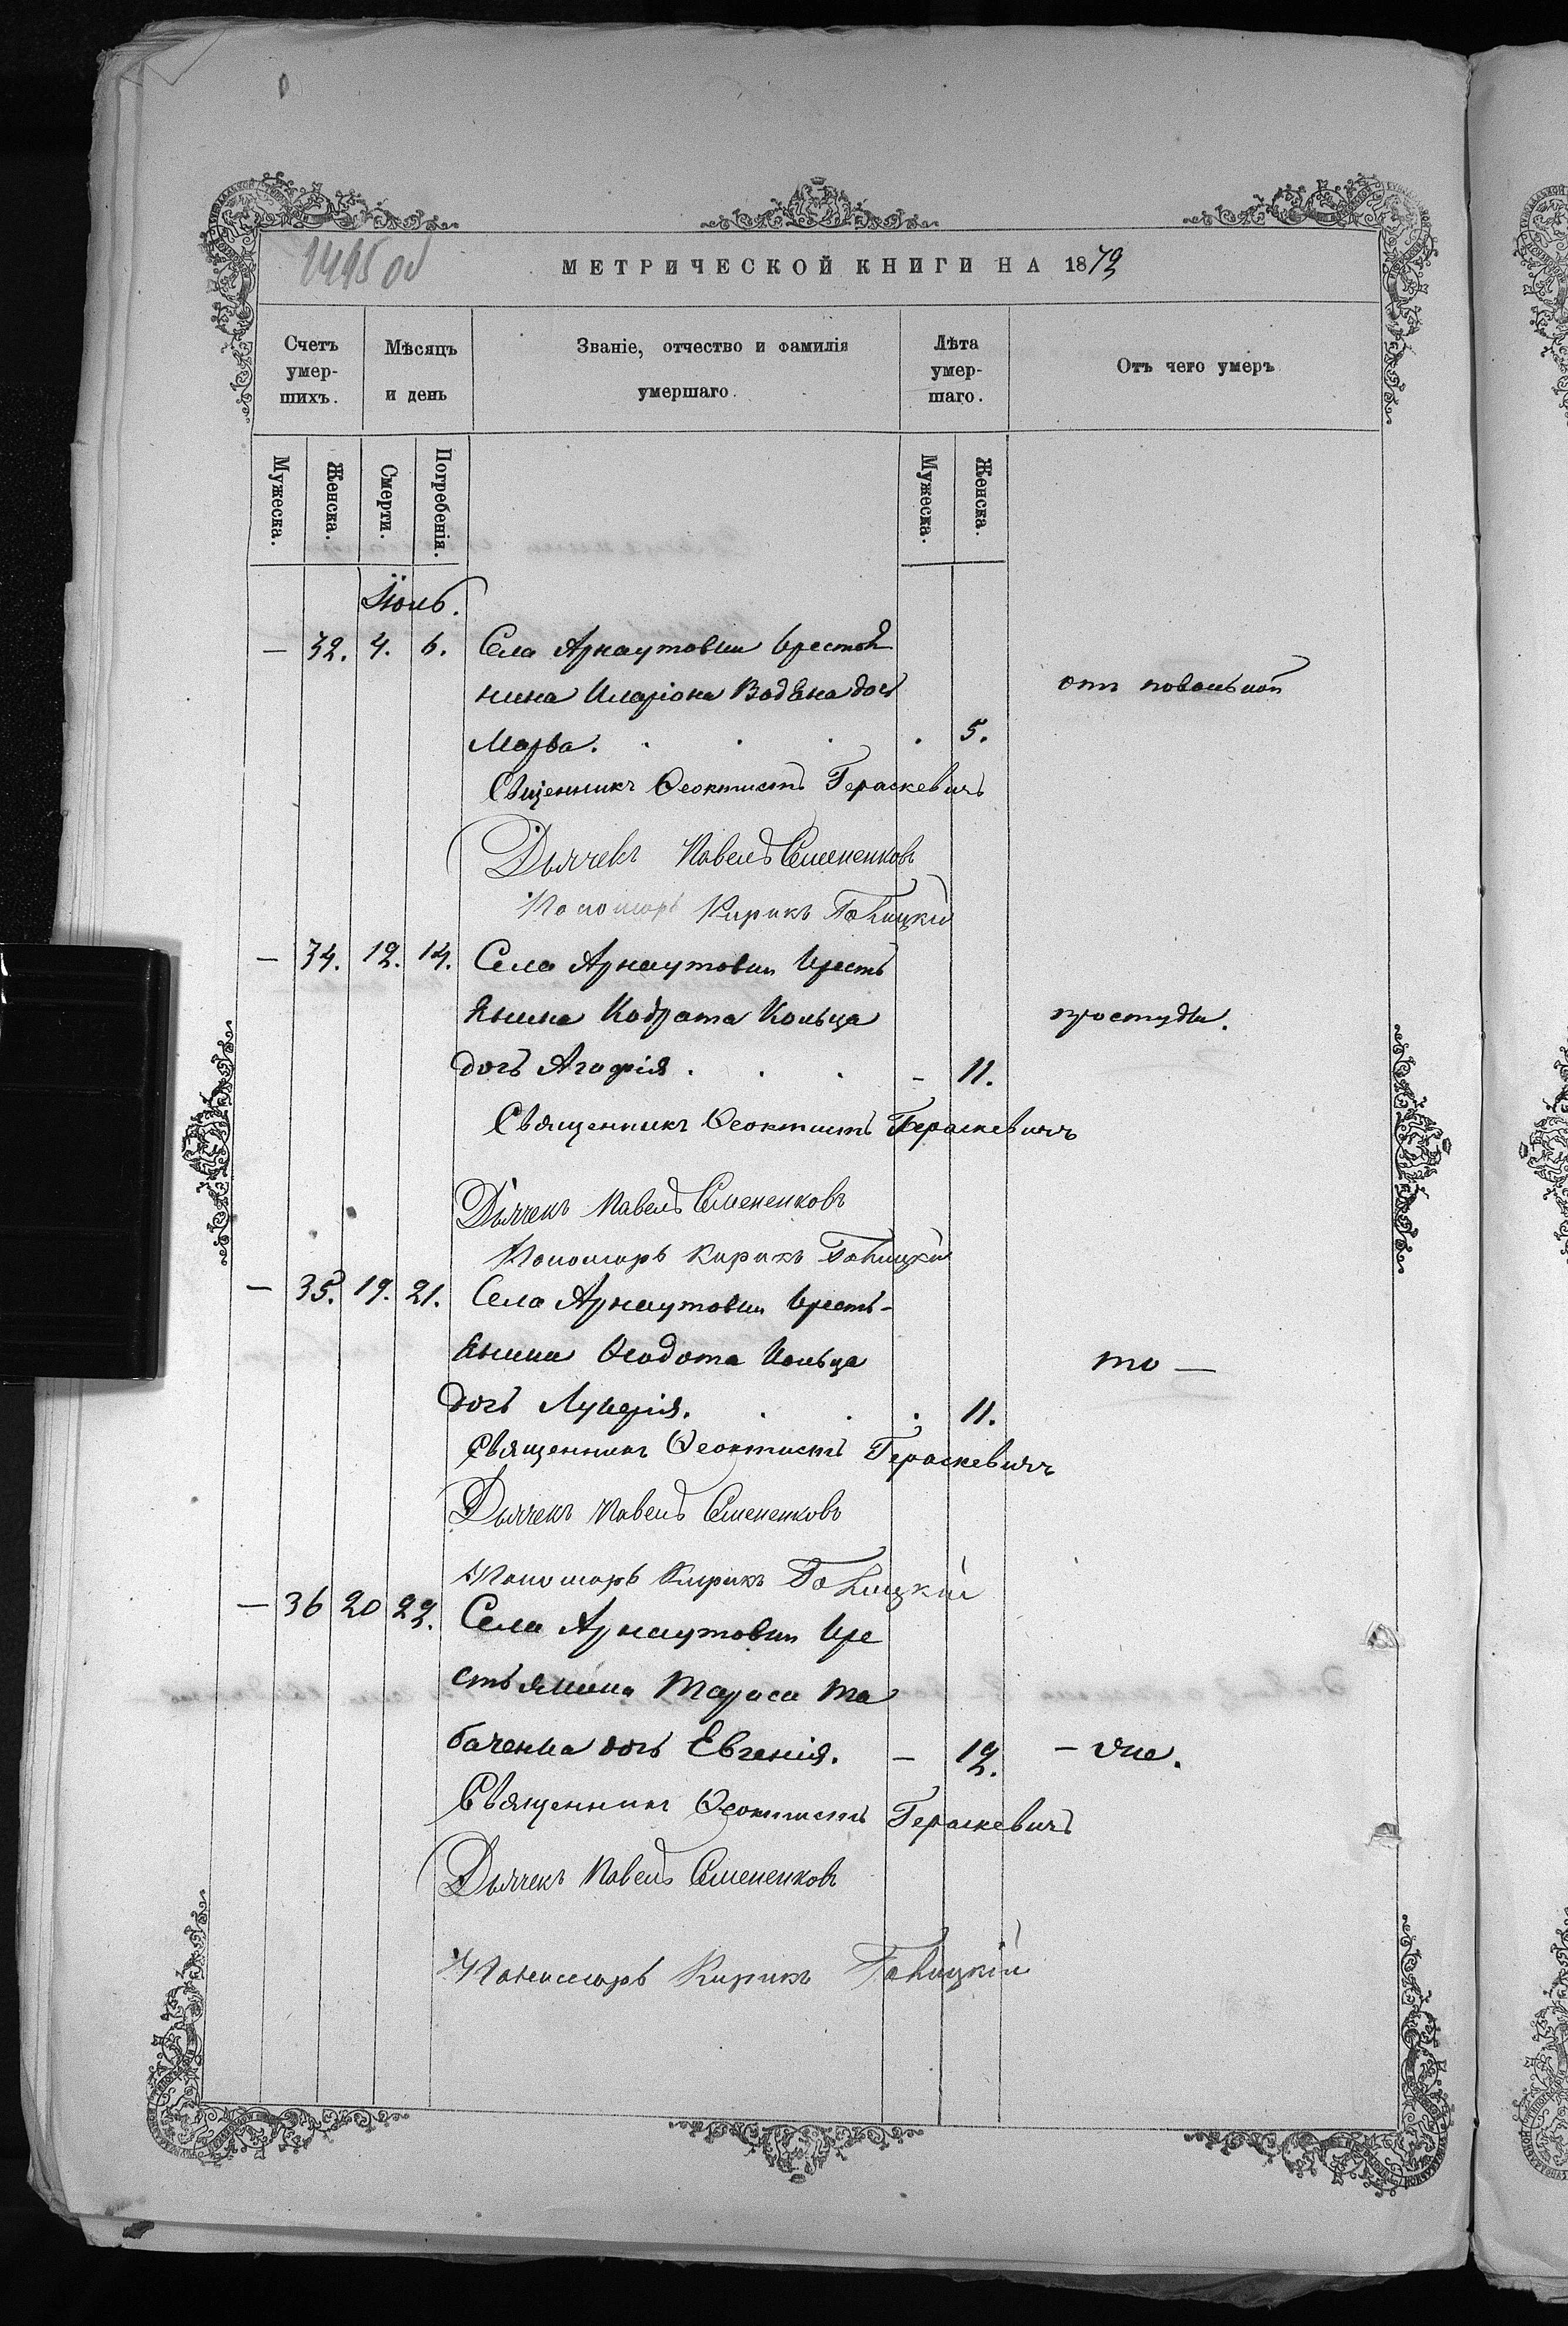 1495 об
МЕТРИЧЕСКОЙ КНИГИ НА 1872
Счетъ умер-шихъ.
Мѣсяцъ и день
Званіе, отчество и фамилія умершаго.
Лѣта умер-шаго.
Отъ чего умеръ
Мужеска.
Женска.
Смерти.
Погребенія.
Мужеска.
Женска.
— 32. 4. 6. Села Арнаутовки крестья
нина Иларіона Водяна дочь от повальной
Марва. 5.
Свщенникъ Ѳеоктистъ Гераскевичъ
Дьячекъ Павелъ Семененковъ
Пономарь Кирикъ
— 34. 12. 14. Села Арнаутовки кресть
янина Кодрата Кольца простуды.
дочь Агафія. - 11.
Священникъ Ѳеоктистъ Гераскевичъ
Дьячекъ Павелъ Семененковъ
Пономарь Кирикъ
— 35. 19. 21. Села Арнаутовки кресть-
янина Ѳеодота Кольца то —
дочь Лукерія. 11.
Священникъ Ѳеоктистъ Гераскевичъ
Дьячекъ Павелъ Семененковъ
Пономарь Кирикъ
— 36 20 22. Села Арнаутовки кре
стьянина Тараса Та
баченка дочь Евгенія. — 12. — же.
Священникъ Ѳеоктистъ Гераскевичъ
Дьячекъ Павелъ Семененковъ
Пономарь Кирикъ